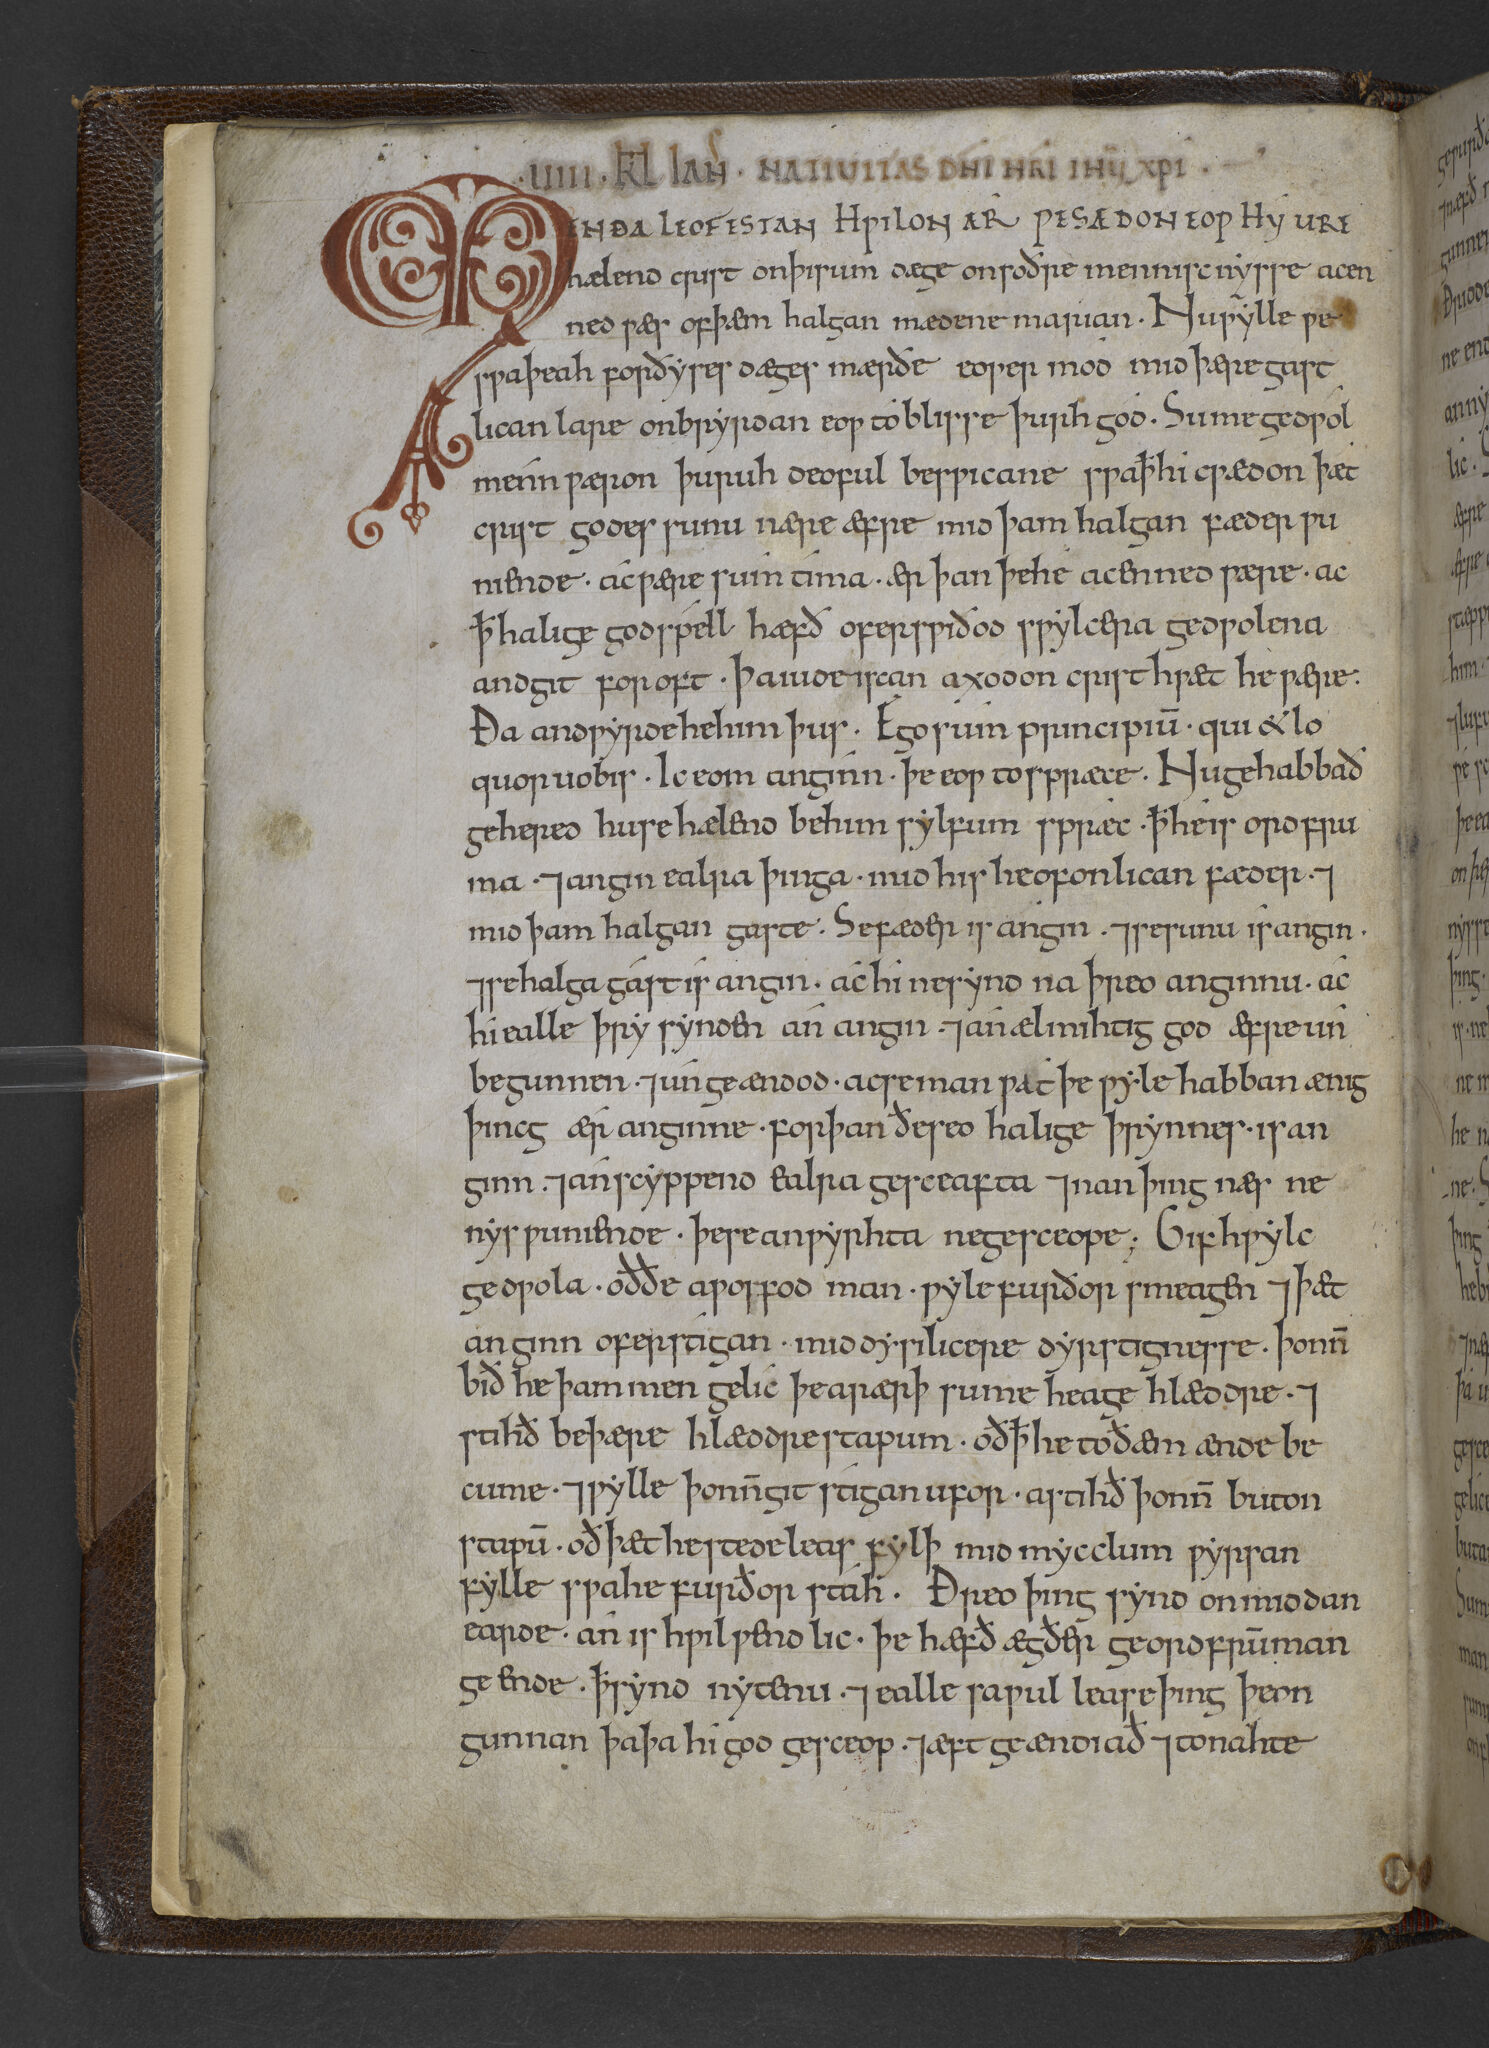 ·UIIII· KL IAN̄ · NATIUITAS DN̄I NR̄I IHŪ XPI ·
MEN ÐA LEOFESTAN HǷILON ÆR ǷE SÆDON EOǷ HU URE
hælend crist on þisum dæge on soðre menniscnysse acen
ned ƿæs of þæm halgan mædene marian · Nu ƿylle ƿe
sƿa þeah for ðyses dæges mærðe eoƿer mód mid þære gast
lican lare onbryrdan eoƿ to blisse þurh gód · Sume gedƿol
menn ƿæron þuruh deoful besƿicane sƿa ꝥ hi cƿædon þæt
crist godes sunu nære æfre mid þam halgan fæder ƿu
niende · ac ƿære sum tima · ær þan þe he acenned ƿære · ac
ꝥ halige godspell hæfð ofersƿiðod sƿylcera gedƿolena
andgit for oft · Þa iudeiscan axodon crist hƿæt he ƿære ·
Ða andƿyrde he him þus · Ego sum principiū · qui & lo
quor uobis · Ic eom anginn · þe eoƿ to spræce · Nu gehabbað
gehered hu se hælend be him sylfum spræc · ꝥ he is ordfru
ma · ⁊ angin ealra þinga · mid his heofonlican fæder · ⁊
mid þam halgan gaste · Se fæder is angin · ⁊ se sunu is angin ·
⁊ se halga gást is angin · ac hi ne synd na þreo anginnu · ac
hi ealle þry synden án angin · ⁊ án ælmihtig god æfre un
begunnen · ⁊ ungeændod · ac se man ƿát þe ƿyle habban ænig
þincg ær anginne · forþan ðe seo halige þrynnes · is an
ginn · ⁊ án scyppend ealra gesceafta ⁊ nan þing næs ne
nys ƿuniende · þe se an ƿyrhta ne gesceope ; Gif hƿylc
gedƿola · oððe aƿoffod man · ƿyle furðor smeagen ⁊ þæt
anginn oferstigan · mid dysilicere dyrstignesse · þonn̄
bið he þam men gelic þe arærþ sume heage hlæddre · ⁊
stihð be þære hlæddre stapum · oð ꝥ he to ðæm ænde be
cume · ⁊ ƿylle þonn̄ git stigan ufor · astihð þonn̄ buton
stapū · oð þæt he stedeleas fylþ mid mycclum ƿyrsan
fylle sƿa he furðor stáh · Ðreo þing synd on middan
earde · án is hƿilƿendlic · þe hæfð ægðer ge ordfrūman
ge ende · ꝥ synd nytenu · ⁊ ealle saƿullease þing þe on
gunnan þa þa hi god gesceop · ⁊ æft geændiað ⁊ to nahte